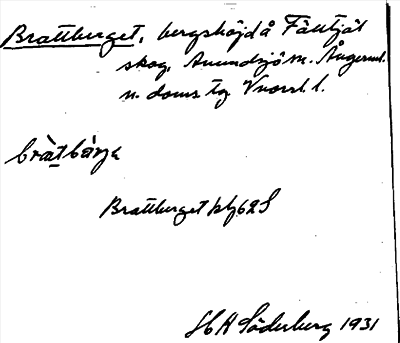 Brattberget, bergshöjd å Fälltjäl
skog, Anundsjö sn. Ångerml.
n. doms tg Vnorrl. l.
bràt̲bàrja
Brattberget kbl 62 S
H A Söderberg 1931